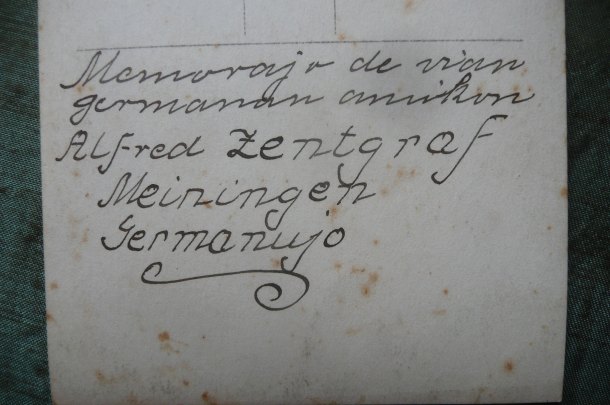 Memorajo de vian
germanan amikon
Alfred Zentgraf
Meiningen
Germanujo